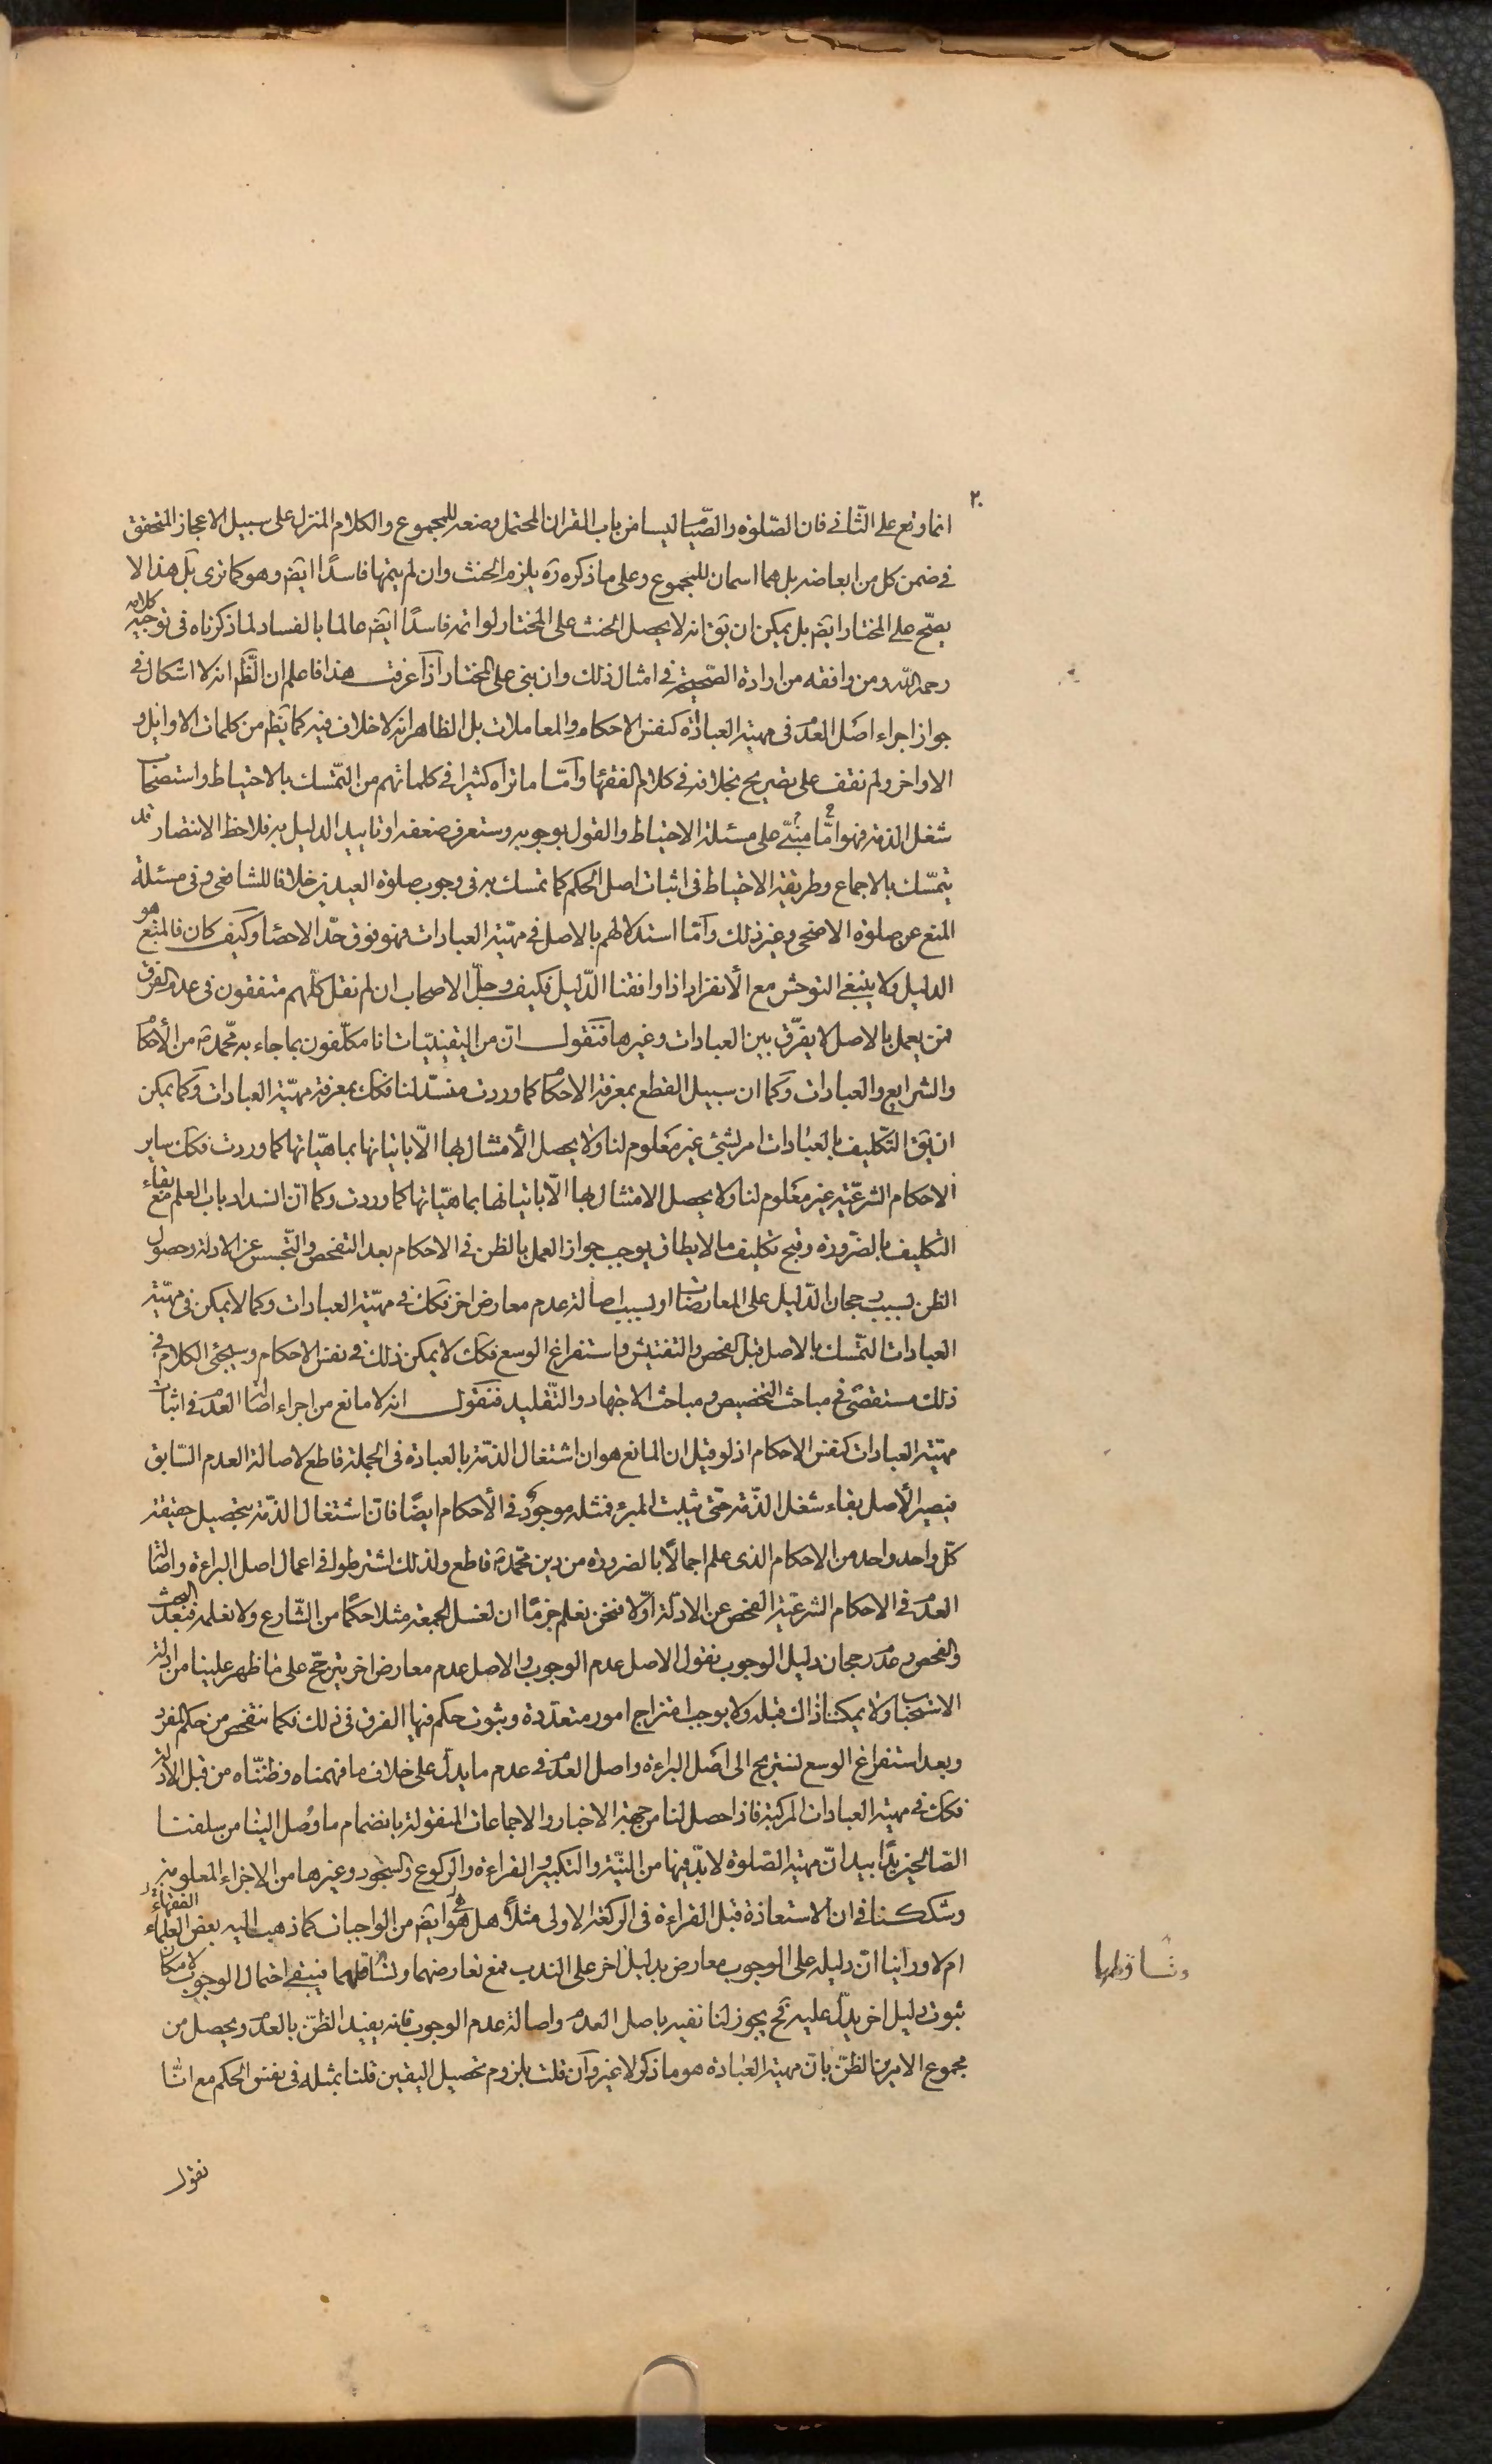 ٢٠
انما وقع على الثانى فان الصّلوة والصّيام ليسا من باب القران المحتمل وضعه للمجموع والكلام المنزل على سبيل الاعجاز المتحقق
فى ضمن كل من ابعاضه بل هما اسمان للمجموع وعلى ما ذكره ره يلزم الحنث وان لم يتمها فاسدًا ايضَ وهو كما ترى بل هذا لا
يصحّ على المختار ايضَ بل يمكن ان يقَ انه لا يحصل الحنث على المختار لو اتمه فاسدًا ايضَ عالما بالفساد لما ذكرناه فى توجيه كلامه
رحمه اللّه ومن وافقه من ارادة الصّحيحة فى امثال ذلك وان بنى على المختار اذا عرفت هذا فاعلم ان الظَّم انه لا اشكال فى
جواز اجراء اصل العدم فى مهية العبادة كنفس الاحكام والمعاملات بل الظاهر انه لا خلاف فيه كما يظهر من كلمات الاوايل و
الاواخر ولم نقف على تصريح بخلافه فى كلام الفقهاء وامّا ما تراه كثيرا فى كلماتهم من التمّسك بالاحتياط واستصحاب
شغل الذمة فهو امّا مبنىّ على مسئلة الاحتياط والقول بوجوبه وستعرف ضعفه او تاييد الدليل به فلاحظ الانتصار قد
يتمسّك بالاجماع وطريقة الاحتياط فى اثبات اصل الحكم كما تمسك به فى وجوب صلوة العيدين خلافا للشافعى و فى مسئلة
المنع عن صلوة الاضحى وغير ذلك وامّا استدلالهم بالاصل فى مهيّة العبادات فهو فوق حدّ الاحصاء وكيف كان فالمتّبع هو
الدليل ولا ينبغى التوحش مع الانفراد اذا وافقنا الدّليل فكيف وجلّ الاصحاب ان لم نقل كلّهم متفقون فى عدم الفرق
فمن يعمل بالاصل لا يفرّق بين العبادات وغيرها فنقول انّ من اليقينيّات انا مكلّفون بما جاء به محمّد ص من الأحكام
والشرايع والعبادات وكما ان سبيل القطع بمعرفة الاحكام كما وردت منسدّ لنا فكك بمعرفة مهيّة العبادات وكما يمكن
ان يقَ التّكليف بالعبادات امر بشئ غير معلوم لنا ولا يحصل الأمتثال بها الاّ باتيانها بماهيّاتها كما وردت فكك ساير
الاحكام الشرعّية غير معلوم لنا ولا يحصل الامتثال بها الاّ باتيانها بماهيّاتها كما وردت وكما انّ انسداد باب العلم مع بقاء
التكليف بالضّرورة وقبح تكليف ما لا يطاق يوجب جواز العمل بالظن فى الاحكام بعد التفحص والتّجسس عن الادلة وحصول
الظن بسبب رجحان الدّليل على المعارضات او بسبب اصالة عدم معارض اخر فكك فى مهيّة العبادات وكما لا يمكن فى مهيّة
العبادات التمّسك بالاصل قبل الفحص والتفتيش واستفراغ الوسع فكك لا يمكن ذلك فى نفس الاحكام وسيجئ الكلام فى
ذلك مستقصّى فى مباحث التخصيص و مباحث الاجتهاد والتّقليد فنقول انه لا مانع من اجراء اصالة العدم فى اثبات
مهيّة العبادات كنفس الاحكام اذ لو قيل ان المانع هو ان اشتغال الذمّة بالعبادة فى الجملة قاطع لاصالة العدم السّابق
فيصير الأصل بقاء شغل الذّمة حتى يثبت المبرء فمثله موجود فى الأحكام ايضًا فانّ اشتغال الذمّة بتحصيل حقيقة
كلّ واحد واحد من الاحكام الذى علم اجمالًا بالضرورة من دين محمّد ص قاطع ولذلك اشترطوا فى اعمال اصل البراءة واصالة
العدم فى الاحكام الشرعيّة الفحص عن الادلّة اوّلا فنحن نعلم جزمًا ان لغسل الجمعة مثلا حكمًا من الشّارع ولا نعلمه فبعد البحث
والفحص و عدم رجحان دليل الوجوب نقول الاصل عدم الوجوب والاصل عدم معارض اخر يترجّح على ما ظهر علينا من ادلة
الاستحباب ولا يمكننا ذاك قبله ولا يوجب امتزاج امور متعدّدة وثبوت حكم فيها الفرق فى ذلك فكما نتفحص من حكم المفرد
وبعد استفراغ الوسع نستريح الى اصل البراءة واصل العدم فى عدم ما يدلّ على خلاف ما فهمناه وظننّاه من قبل الادلة
فكك فى مهية العبادات المركبة فاذا حصل لنا من جهة الاخبار والاجماعات المنقولة بانضمام ما وصل الينا من سلفنا
الصّالحين يدًا بيد انّ مهية الصّلوة لا بدّ فيها من النيّة والتكبير والقراءة والركوع والسّجود وغيرها من الاجزاء المعلومة
وشككنا فى ان الاستعاذة قبل القراءة فى الركعة الاولى مثلاً هل هو ايضَ من الواجبات كما ذهب اليه بعض العلماء الفقهاء
ام لا وراينا انّ دليله على الوجوب معارض بدليل اخر على الندب فمع تعارضهما وتساقطهما فيبقى احتمال الوجوب لامكان
ثبوت دليل اخر يدلّ عليه فح يجوز لنا نفيه باصل العدم واصالة عدم الوجوب فانه يفيد الظنّ بالعدم ويحصل من
مجموع الامرين الظنّ بانّ مهية العبادة هو ما ذكر لا غير وان قلت بلزوم تحصيل اليقين قلنا بمثله فى نفس الحكم مع انّا
وتساقطهما
نقول